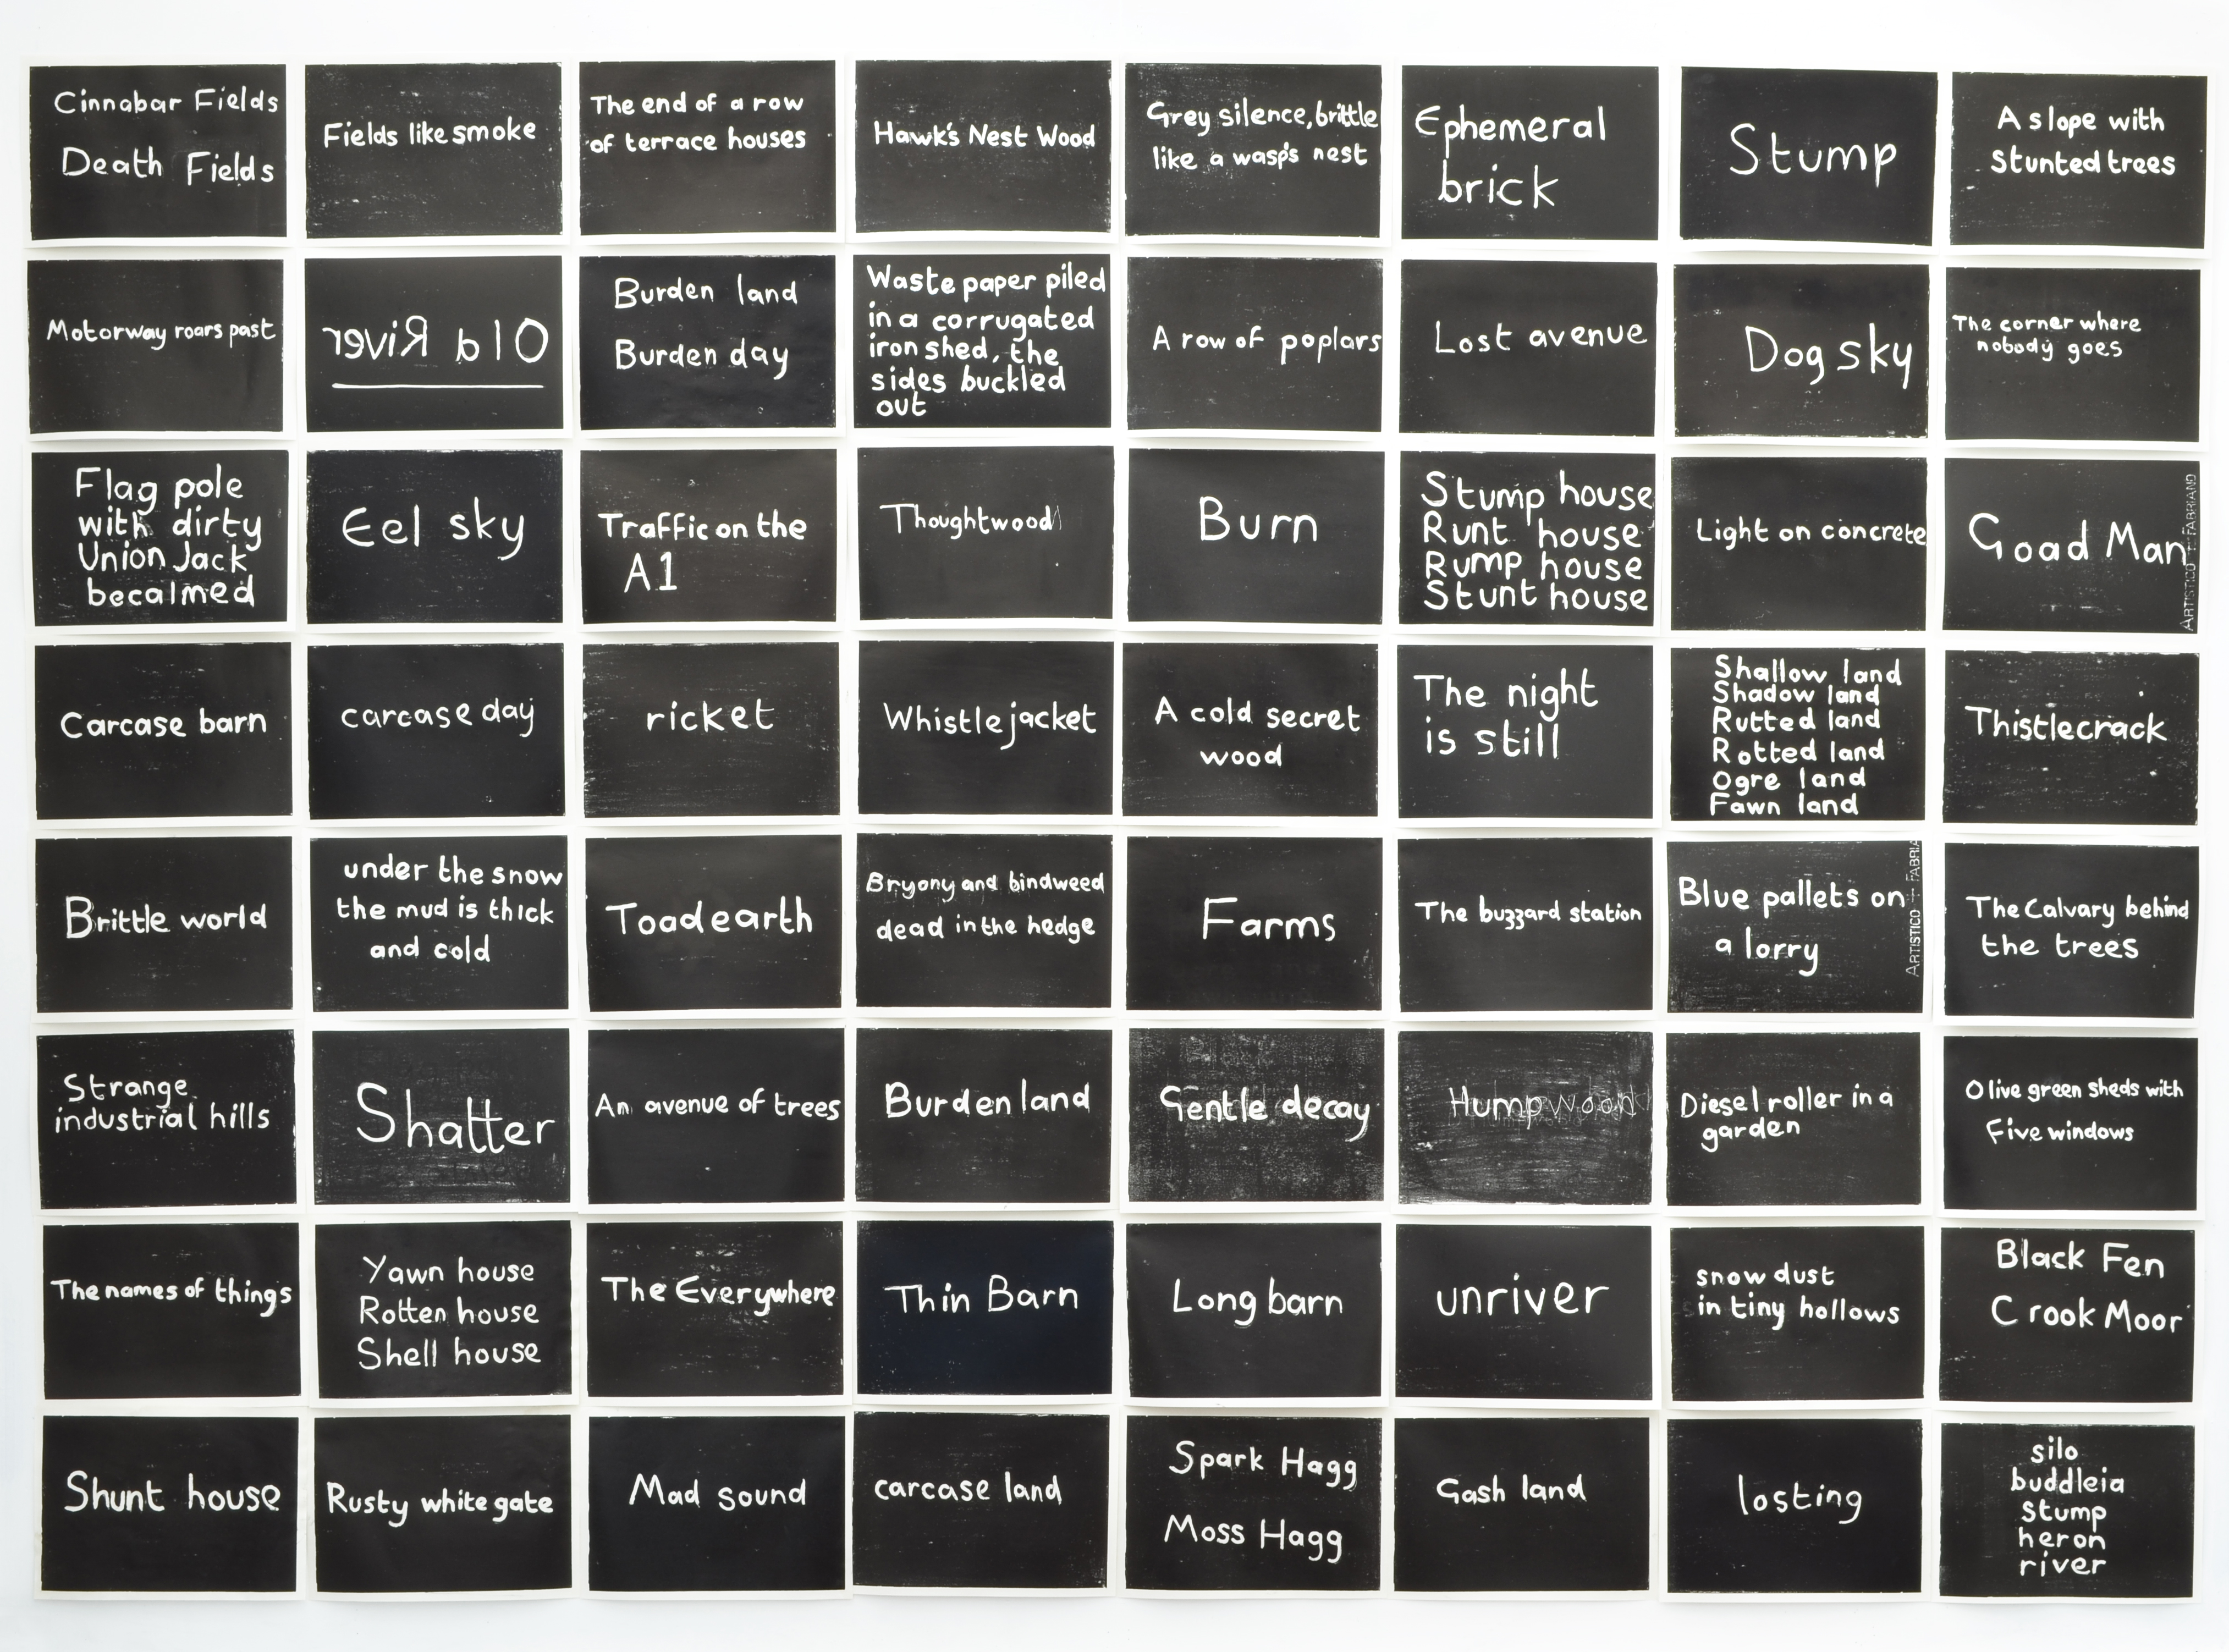 Cinnabar Fields
Death Fields
Fields like smoke
The end of a row
of terrace houses
Hawk's Nest Wood
Grey silence, brittle
like a wasp's nest
Ephemeral
brick
Stump
A slope with
Stunted trees
Motorway roars past
Old River
Burden land
Burden day
Waste paper piled
in a corrugated
iron shed, the
sides buckled
out
A row of poplars
Lost avenue
Dog sky
The corner where
nobody goes
Flag pole
with dirty
Union Jack
becalmed
Eel sky
Traffic on the
A1
Thoughtwood
Burn
Stump house
Runt house
Rump house
Stunt house
Light on concrete
Goad Man
ARTISTICO - FABRIANO
Carcase barn
carcase day
ricket
Whistlejacket
A cold secret
wood
The night
is still
Shallow land
Shadow land
Rutted land
Rotted land
Ogre land
Fawn land
Thistlecrack
Brittle world
under the snow
the mud is thick
and cold
Toad earth
Bryony and bindweed
dead in the hedge
Farms
The buzzard station
Blue pallets on
a lorry
ARTISTICO - FABRIA
The Calvary behind
the trees
Strange
industrial hills
Shatter
An avenue of trees
Burden land
Gentle decay
Humpwood
Diesel roller in a
garden
Olive green sheds with
Five windows
The names of things
Yawn house
Rotten house
Shell house
The Everywhere
Thin Barn
Long barn
unriver
snow dust
in tiny hollows
Black Fen
Crook Moor
Shunt house
Rusty white gate
Mad sound
carcase land
Spark Hagg
Moss Hagg
Gash land
losting
silo
buddleia
stump
heron
river